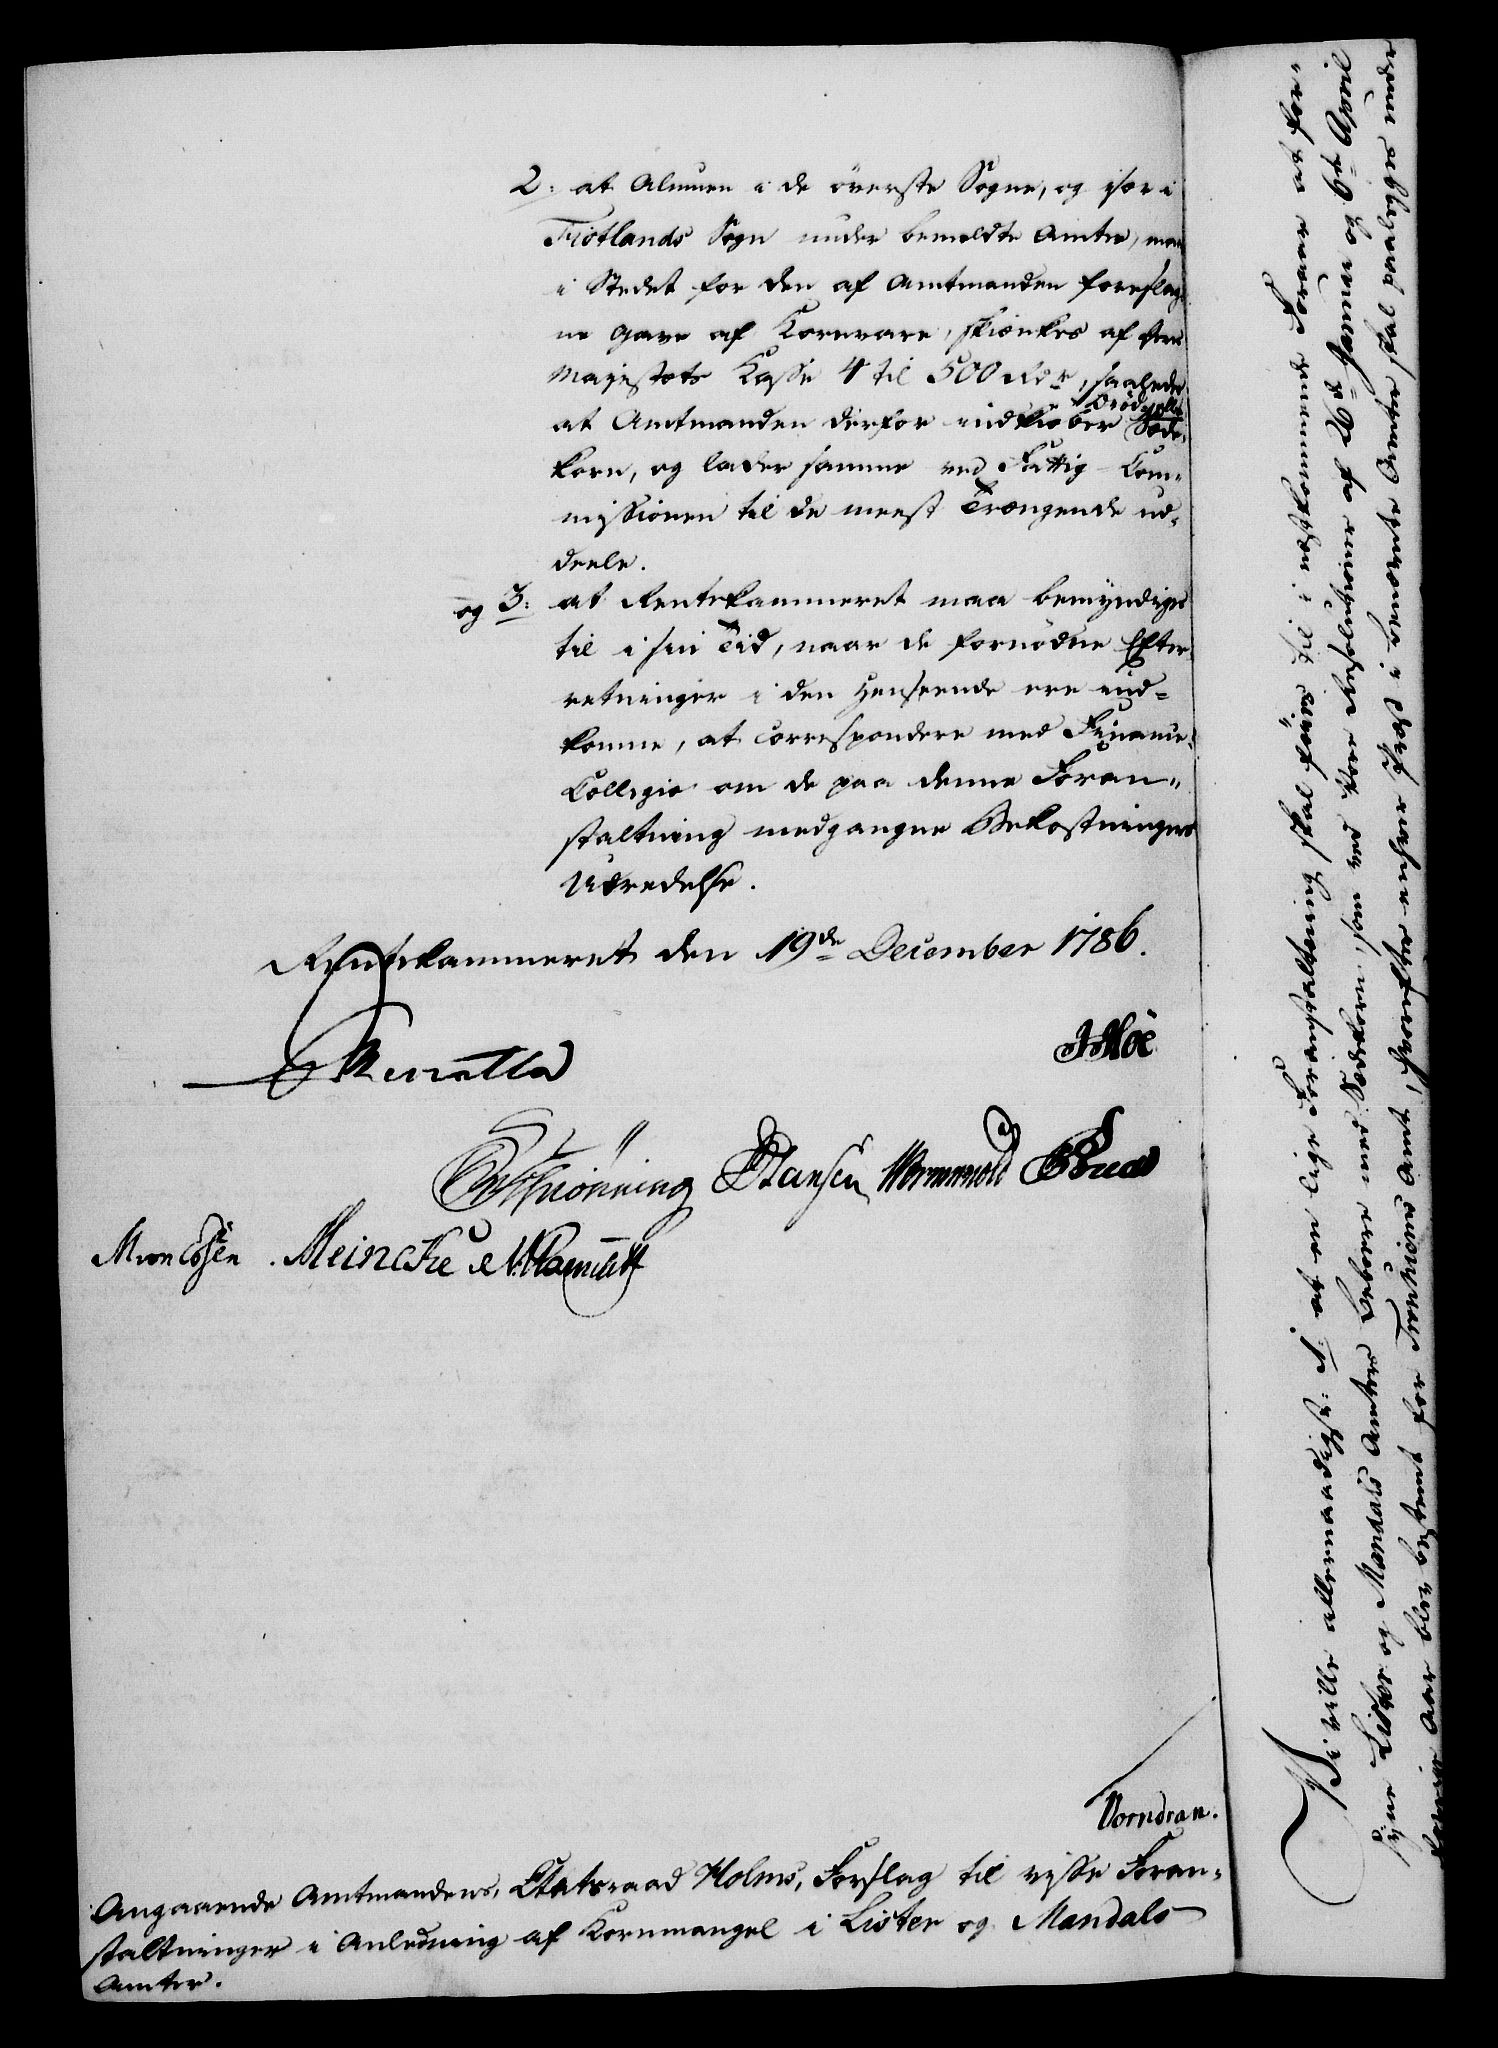 2: at Almuen i de överste Sogne, og især i
Fiotlands Sogn under bemeldte Amter, maa
i Stedet for den af Amtmanden foreslag-
ne Gave af Kornvare, skiænkes af Deres
Majestæts Kasse 4 til 500 Rdr, saaledes
at Amtmanden derfor indkiøber Sæde-
korn, og lader samme ved Fattig-Com-
missionen til de meest Trængende ud-
deele.
og 3: at Rentekammeret maa bemyndiges
til i sin Tid, naar de fornödne Efter-
retninger i den Henseende ere ind-
komne, at correspondere med Finance-
Collegio om de paa denne Foran-
staltning medgangne Bekostningers
Udredelse.
Rentekammeret den 19de December 1786.
Reventlo
JHoë
Schiönning Hansen Wormskiold
Meincke
Vorndran.
Angaaende Amtmandens, Etatsraad Holms, Forslag til visse Foran-
staltninger i Anledning af Kornmangel i Lister og Mandals
Amter.
Vi ville allernaadigst: 1: at en lige Foranstaltning skal föies til i næstkommende Foraar at for-
syne Lister og Mandals Amters Beboere med Sædekorn, som ved Vore Resolutioner af 26de Januar og 6te April
forrige Aar blev bestemt for Tronhiems Amt, hvorefter enhver Præst i benævnte Amter, skal paalægges under